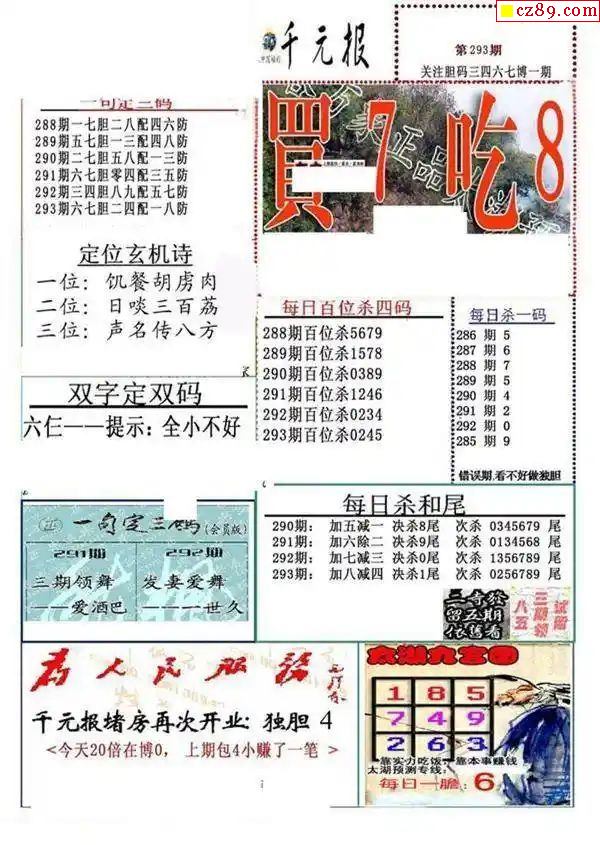 cz89.com
千元报
第293期
关注胆码三四六七博一期
一句定三码
288期一七胆二八配四六防
289期五七胆一三配四八防
290期二七胆五八配一三防
291期六七胆零四配三五防
292期三四胆八九配五七防
293期六七胆二四配一八防
買7吃8
定位玄机诗
一位：饥餐胡虏肉
二位：日啖三百荔
三位：声名传八方
每日百位杀四码
288期百位杀5679
289期百位杀1578
290期百位杀0389
291期百位杀1246
292期百位杀0234
293期百位杀0245
每日杀一码
286 期 5
287 期 6
288 期 7
289 期 5
290 期 4
291 期 2
292 期 0
285 期 9
错误期,看不好做独胆
双字定双码
六仨——提示：全小不好
一句定三码(会员版)
291期
三期领舞
——爱酒巴
292期
发妻爱舞
——一世久
每日杀和尾
290期： 加五减一 决杀8尾 次杀 0345679 尾
291期： 加六除二 决杀9尾 次杀 0134568 尾
292期： 加七减三 决杀0尾 次杀 1356789 尾
293期： 加八减四 决杀1尾 次杀 0256789 尾
三奇發
留五期
依舊看
三期领
八五
试验
为人民服务
千元报堵房再次开业：独胆 4
<今天20倍在博0， 上期包4小赚了一笔 >
太湖九宫图
1 8 5
7 4 9
2 6 3
靠实力吃饭：靠本事赚钱
太湖预测专线：
每日一胆：6